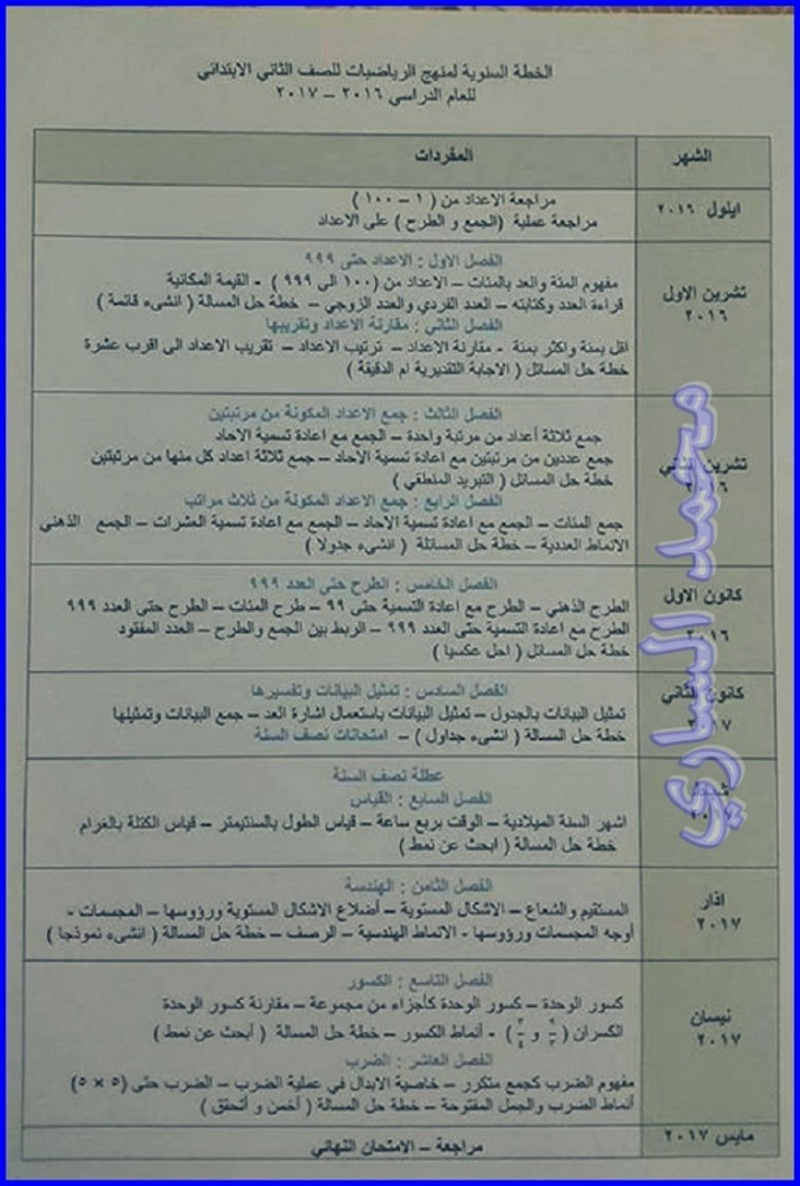 الخطة السنوية لمنهج الرياضيات للصف الثاني الابتدائي
للعام الدراسي ٢٠١٦ – ٢٠١٧
الشهر
المفردات
ايلول ٢٠١٦
مراجعة الاعداد من ( ١ – ١٠٠ )
مراجعة عملية (الجمع و الطرح ) على الاعداد
تشرين الاول
٢٠١٦
الفصل الاول : الاعداد حتى ٩٩٩
مفهوم المئة والعد بالمئات – الاعداد من (١٠٠ الى ٩٩٩ ) - القيمة المكانية
قراءة العدد وكتابته – العدد الفردي والعدد الزوجي – خطة حل المسالة ( انشىء قائمة )
الفصل الثاني : مقارنة الاعداد وتقريبها
اقل بمئة واكثر بمئة - مقارنة الاعداد – ترتيب الاعداد – تقريب الاعداد الى اقرب عشرة
خطة حل المسائل ( الاجابة التقديرية ام الدقيقة )
تشرين الثاني
٢٠١٦
الفصل الثالث : جمع الاعداد المكونة من مرتبتين
جمع ثلاثة أعداد من مرتبة واحدة – الجمع مع اعادة تسمية الاحاد
جمع عددين من مرتبتين مع اعادة تسمية الاحاد – جمع ثلاثة اعداد كل منها من مرتبتين
خطة حل المسائل ( التبرير المنطقي )
الفصل الرابع : جمع الاعداد المكونة من ثلاث مراتب
جمع المئات – الجمع مع اعادة تسمية الاحاد – الجمع مع اعادة تسمية العشرات – الجمع الذهني
الانماط العددية – خطة حل المسائلة ( انشىء جدولا )
كانون الاول
٢٠١٦
الفصل الخامس : الطرح حتى العدد ٩٩٩
الطرح الذهني – الطرح مع اعادة التسمية حتى ٩٩ – طرح المئات – الطرح حتى العدد ٩٩٩
الطرح مع اعادة التسمية حتى العدد ٩٩٩ – الربط بين الجمع والطرح – العدد المفقود
خطة حل المسائل ( احل عكسيا )
كانون الثاني
٢٠١٧
الفصل السادس : تمثيل البيانات وتفسيرها
تمثيل البيانات بالجدول – تمثيل البيانات باستعمال اشارة العد – جمع البيانات وتمثيلها
خطة حل المسالة ( انشىء جداول ) – امتحانات نصف السنة
عطلة نصف السنة
الفصل السابع : القياس
اشهر السنة الميلادية – الوقت بربع ساعة – قياس الطول بالسنتيمتر – قياس الكتلة بالغرام
خطة حل المسالة ( ابحث عن نمط )
اذار
٢٠١٧
الفصل الثامن : الهندسة
المستقيم والشعاع – الاشكال المستوية – أضلاع الاشكال المستوية ورؤوسها – المجسمات -
أوجه المجسمات ورؤوسها - الانماط الهندسية – الرصف – خطة حل المسالة ( انشىء نموذجا )
نيسان
٢٠١٧
الفصل التاسع : الكسور
كسور الوحدة – كسور الوحدة كأجزاء من مجموعة – مقارنة كسور الوحدة
الكسران ( و ) - أنماط الكسور – خطة حل المسالة ( أبحث عن نمط )
الفصل العاشر : الضرب
مفهوم الضرب كجمع متكرر – خاصية الابدال في عملية الضرب – الضرب حتى (٥ × ٥)
أنماط الضرب والجمل المفتوحة – خطة حل المسالة ( أخمن و أتحقق )
مايس ٢٠١٧
مراجعة – الامتحان النهائي
محمد الساري